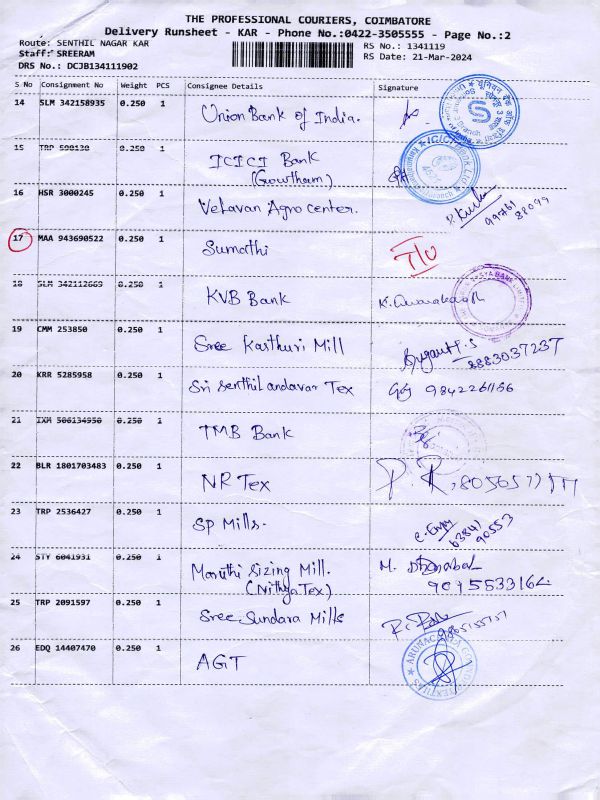 THE PROFESSIONAL COURIERS, COIMBATORE
Delivery Runsheet - KAR - Phone No.:0422-3505555 - Page No.:2
Route: SENTHIL NAGAR KAR
RS No.: 1341119
Staff: SREERAM
RS Date: 21-Mar-2024
DRS No.: DCJB134111902
S No Consignment No Weight PCS Consignee Details Signature
14 SLM 342158935 0.250 1 Union Bank of India.
15 TRP 0.250 1 ICICI Bank
(Growtherm)
16 HSR 3000245 0.250 1 Velavan Agro center.
17 MAA 943690522 0.250 1 Sumathi T/O
18 SLM 342112669 0.250 1 KVB Bank
19 CMM 253850 0.250 1 Sree Karthuri Mill
8883037237
20 KRR 5285958 0.250 1 Sri Senthilandavar Tex 9842261156
21 IXM 506134950 0.250 1 TMB Bank
22 BLR 1801703483 0.250 1 NR Tex P. R.
23 TRP 2536427 0.250 1 SP Mills.
63841
90553
24 STY 6041931 0.250 1 Maruthi Sizing Mill. M. Dhanabal
(Nithya Tex)
25 TRP 2091597 0.250 1 Sree Sundara Mills
26 EDQ 14407470 0.250 1 AGT